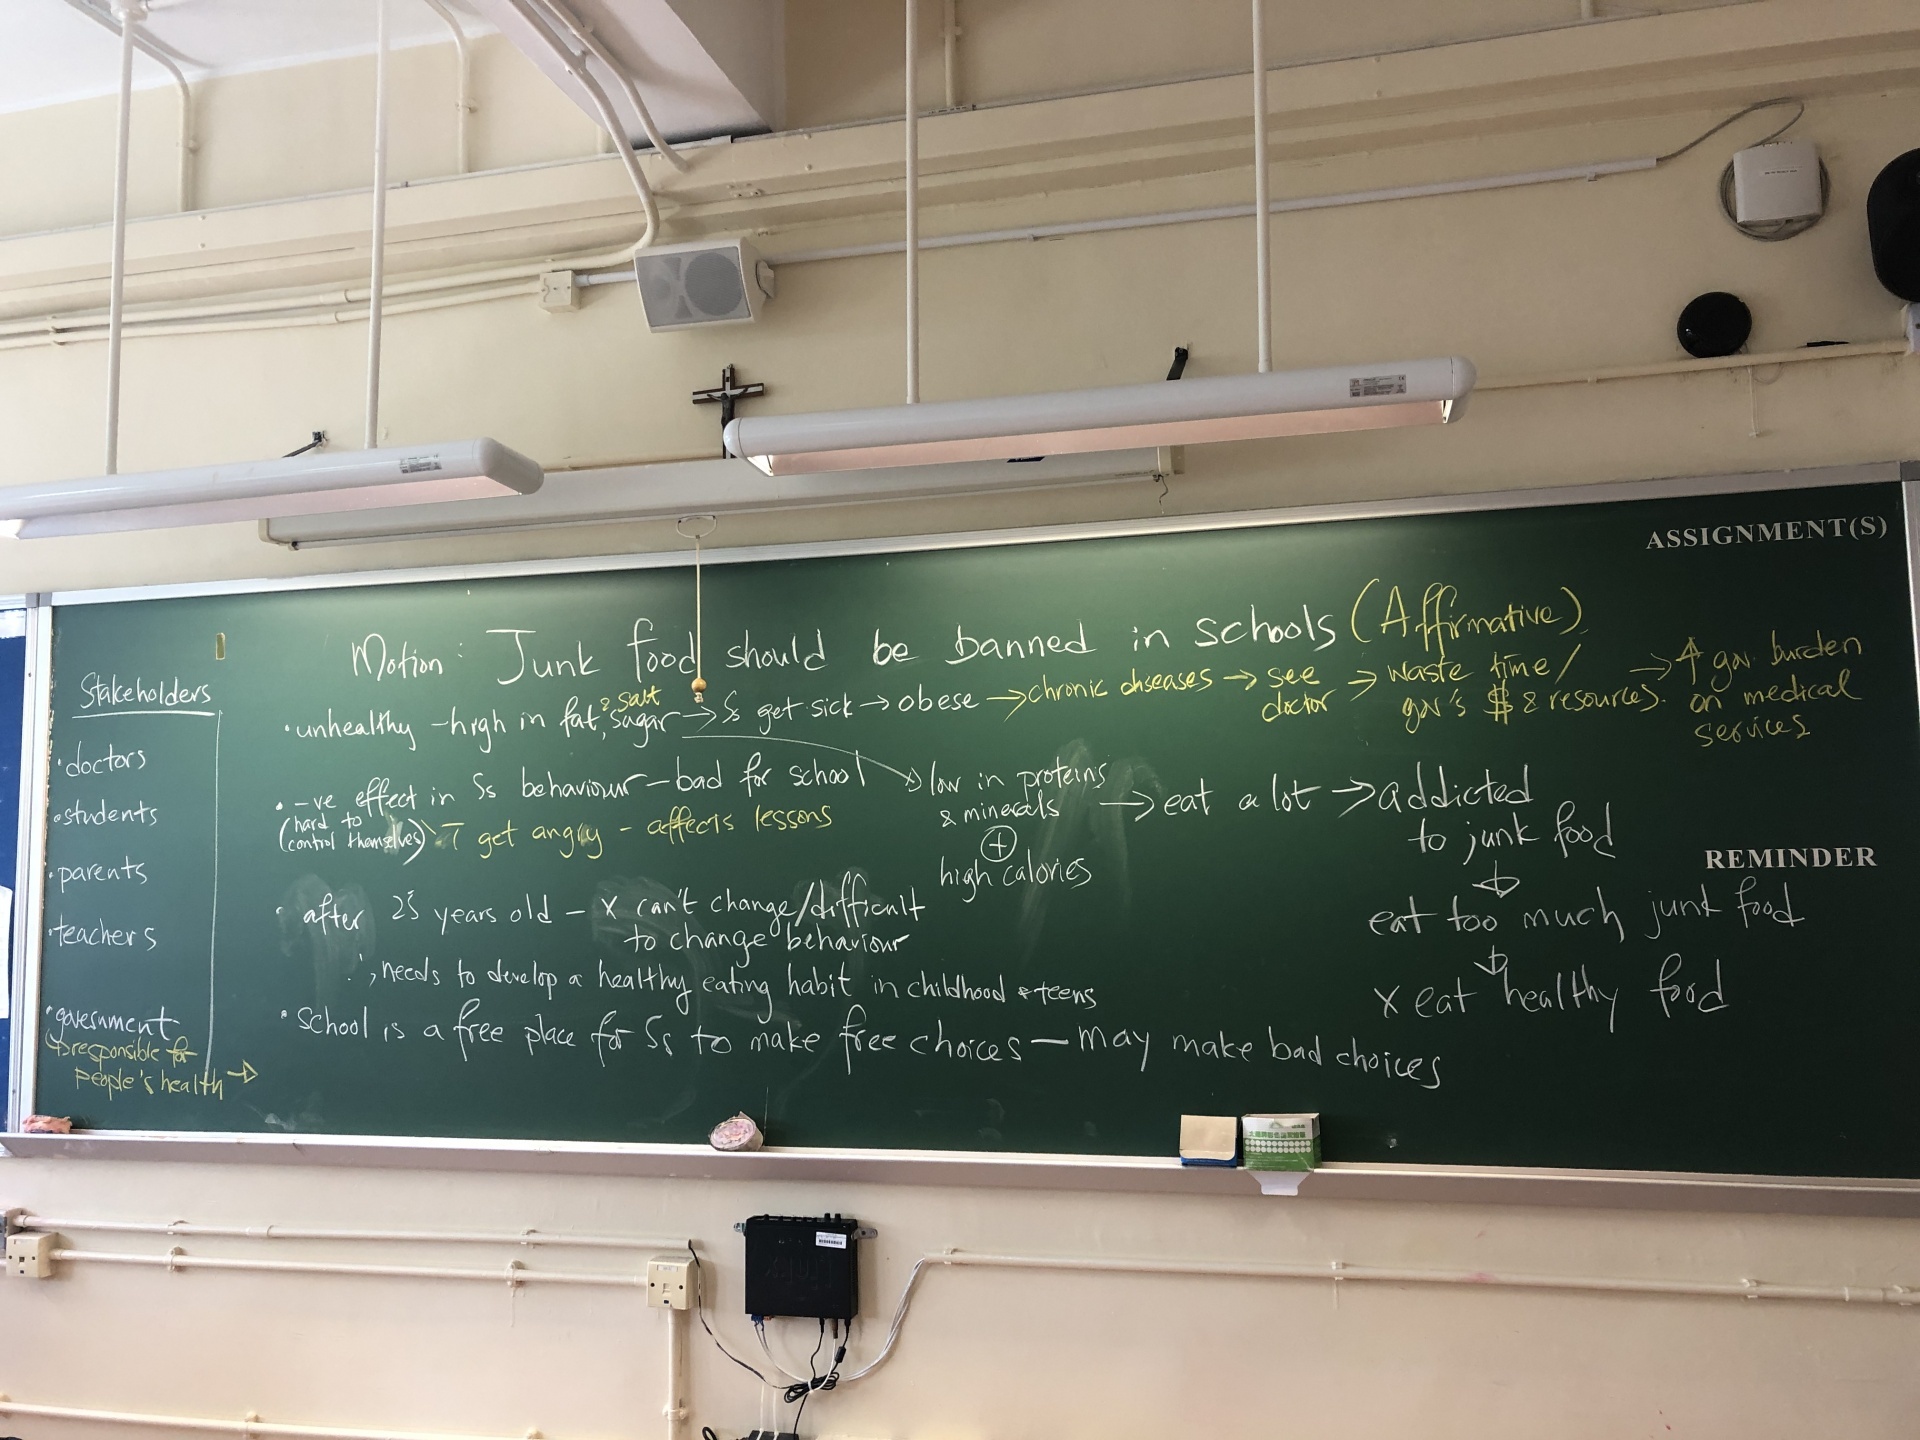 ASSIGNMENT(S)
Motion: Junk food should be banned in schools (Affirmative)
Stakeholders
•doctors
•students
•parents
•teachers
•government
↳responsible for
people's health →
•unhealthy - high in fat, sugar & salt → Ss get sick → obese → chronic diseases → see doctor → waste time/ gov's $ & resources. → ↑ gov. burden on medical services
→ low in proteins
& minerals
⊕
high calories
→ eat a lot → addicted
to junk food
↓
eat too much junk food
↓
x eat healthy food
• -ve effect in Ss behaviour - bad for school
(hard to
control themselves)
T get angry - affects lessons
• after 25 years old - x can't change/difficult
to change behaviour
∴, needs to develop a healthy eating habit in childhood & teens
• School is a free place for Ss to make free choices - may make bad choices
REMINDER